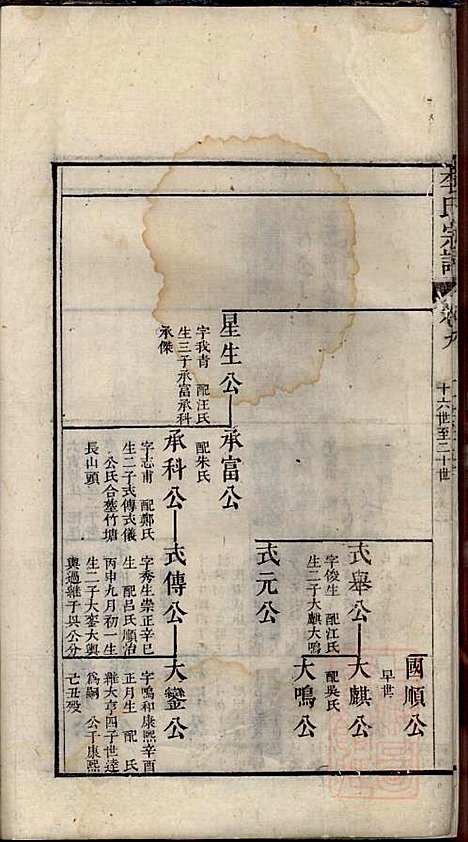 李氏宗譜
卷九
十六世至二十世
國順公
早世
式舉公
字俊生 配江氏
生二子大麒大鳴
大麒公
配吳氏
大鳴公
式元公
星生公
字我青 配汪氏
生三子承富承科
承傑
承富公
配朱氏
承科公
字志甫 配鄭氏
生二子式傳式儀
公氏合塟竹塘
長山頭
式傳公
字秀生崇正辛巳
生 配呂氏順治
丙申九月初一生
生二子大鑾大輿
輿過繼子與公分
大鑾公
字鳴和康熙辛酉
正月生 配 氏
繼大亨四子世達
為嗣 公于康熙
己丑歿